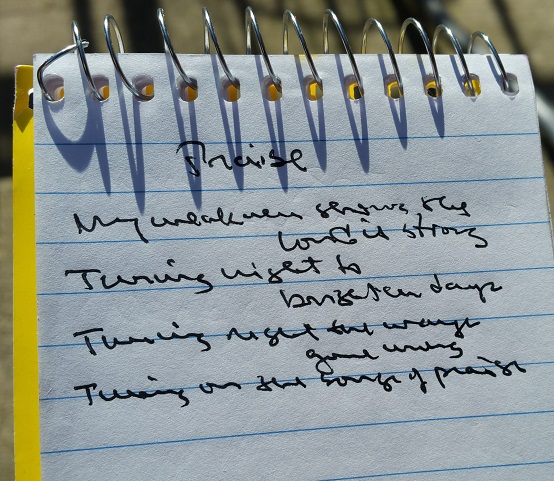 Praise
My weakness shows the
Lord is strong
Turning night to
brighten days
Turning right the wrongs
gone wrong
Turning on the songs of praise